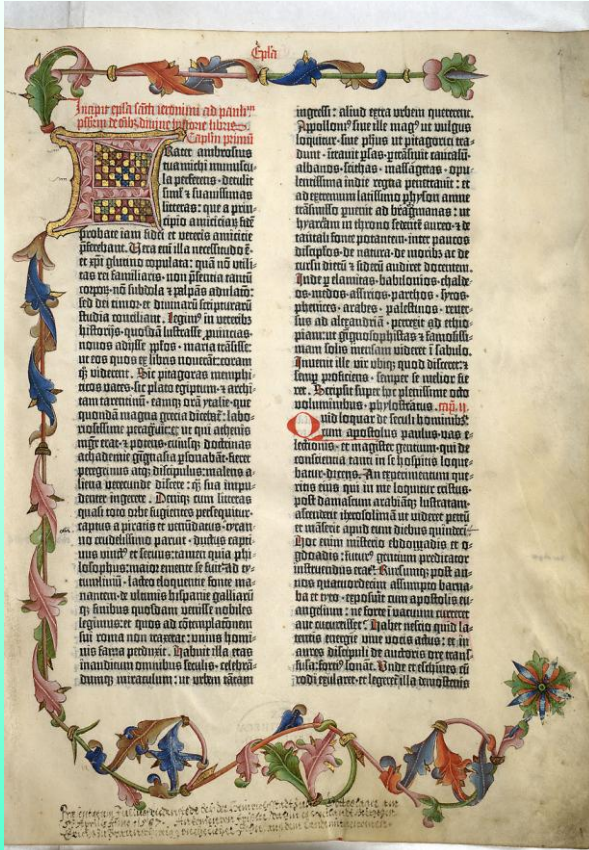 Epła
Incipit epła sancti iheronimi ad paulinum
prim
Frater ambrosius
tua michi munuscu-
la perferens · detulit
simul et suauissimas
litteras : que a prin-
cipio amiciciarum fidē
probate iam fidei et veteris amicicie
preferebant. Vera enī illa necessitudo ē ·
et xp̄i glutino copulata : quā nō vtili-
tas rei familiaris · non presentia tantū
corporū · nō subdola et palpās adulatō :
sed dei timor · et diuinarū scripturarū
studia conciliant. Legimus in veteribs
historijs · quosdā lustrasse prouincias ·
nouos adijsse pplos · maria trāsisse :
ut eos quos ex libris nouerāt : coram
quoq̧ viderent. Sic pitagoras memphi-
ticos vates · sic plato egiptum · et archi-
tam tarentinū · eamq̧ orā ytalie · que
quondā magna grecia dicebat : labo-
riosissime peragrauit : et ut qui athenis
mgr̄ erat · et potens · cuiusq̧ doctrinas
achademie gignasia psonabāt · fieret
peregrinus atq̧ discipulus : malens a-
liena verecunde discere : q̄ sua impu-
denter ingerere. Deniq̧ cum litteras
quasi toto orbe fugientes persequitur ·
captus a piratis et venūdatus · tyran-
no crudelissimo paruit · ductus capti-
uus vinctus et seruus : tamen quia phi-
losophus : maior emente se fuit · ad ty-
tumliuiū · lacteo eloquentie fonte ma-
nantem · de vltimis hispanie galliarū-
q̧ finibus quosdam venisse nobiles
legimus : et quos ad cōtemplacionem
sui roma non traxerat : vnius homi-
nis fama perduxit. Habuit illa etas
inauditum omnibus seculis · celebrā-
dumq̧ miraculum : ut vrbem tātam
ingressi : aliud extra vrbem quererent.
Apolloni9 siue ille mag9 ut vulgus
loquitur · siue ph̄us ut pitagorici tra-
dunt · intrauit psas · ptrāsiuit caucasū ·
albanos · scithas · massagetas · opu-
lentissima indie regna penetrauit : et
ad extremum latissimo physon amne
trāsmisso puenit ad bragmanas : ut
hyarcam in throno sedentē aureo · et de
tantali fonte potantem · inter paucos
discipulos · de natura · de moribs · ac de
cursu dierū et siderū audiret docentem.
Inde per elamitas · babilonios · chalde-
os · medos · assirios · parthos · syros ·
phenices · arabes · palestinos · reuer-
sus ad alexandriā · perrexit ad ethio-
piam : ut gignosophistas et famosissi-
mam solis mensam videret i sabulo.
Inuenit ille vir vbiq̧ quod disceret : et
semp proficiens · semper se melior fie-
ret. Scripsit super hoc plenissime octo
voluminibus · phylostratus. cap. ii.
Quid loquar de seculi hominibs :
cum apostolus paulus · vas e-
lectionis · et magister gentium · qui de
consciencia tanti in se hospitis loque-
batur · dicens. An experimentum que-
ritis eius qui in me loquitur cristus.
post damascum arabiāq̧ lustratam :
ascenderit iherosolimā ut videret petrū
et māserit apud eum diebus quindeci
Hoc enim misterio ebdomadis et o-
gdoadis : futurus gentium predicator
instruendus erat. Rursumq̧ post an-
nos quatuordecim assumpto barna-
ba et tyto · exposuit cum apostolis eu-
angelium : ne forte i vacuum curreret
aut cucurrisset. Habet nescio quid la-
tentis energie viue vocis actus : et in
aures discipuli de auctoris ore trans-
fusa : forcius sonat. Vnde et eschines cū
rodi exularet · et legeret illa demostenis